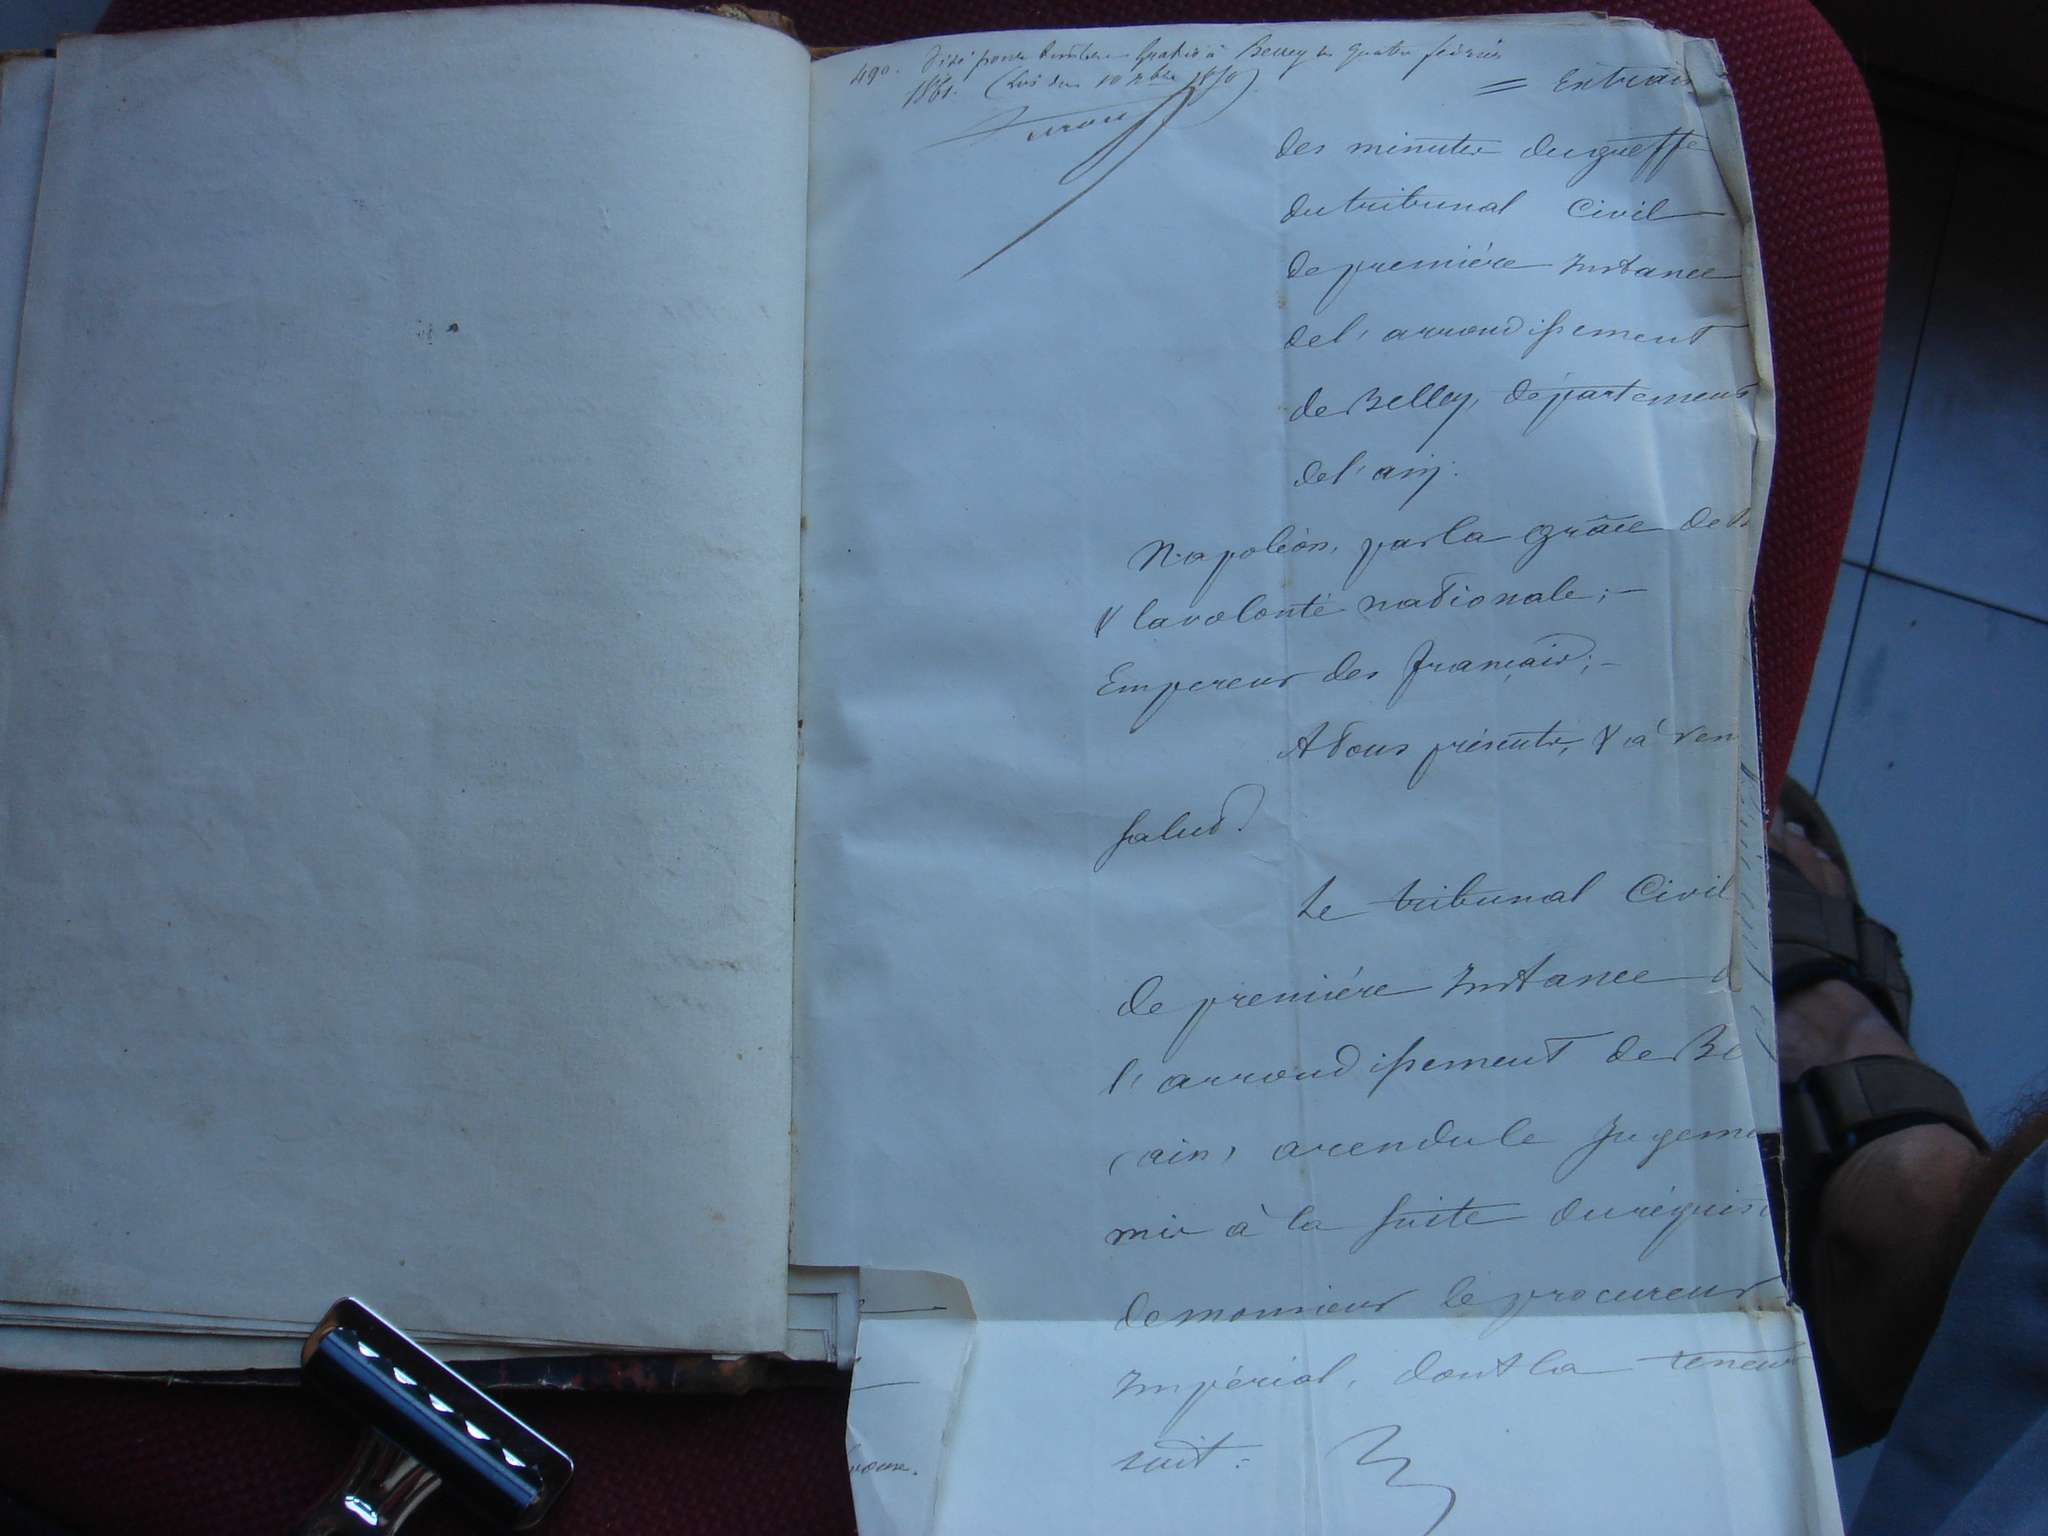 490. Visé pour timbre gratis à Belley le quatre février
1861. (Loi du 10 Xbre 1850)
= Extrait
des minutes du greffe
du tribunal Civil
de première Instance
de l'arrondissement
de Belley, département
de l'ain:
Napoléon, par la grâce de
& la volonté nationale;
Empereur des français;
A tous présents, & à ven
salut.
Le tribunal Civil
de première Instance d
l'arrondissement de Be
(ain) a rendu le Jugeme
mis à la suite du réquis
de monsieur le procureur
Impérial, dont la teneur
suit: